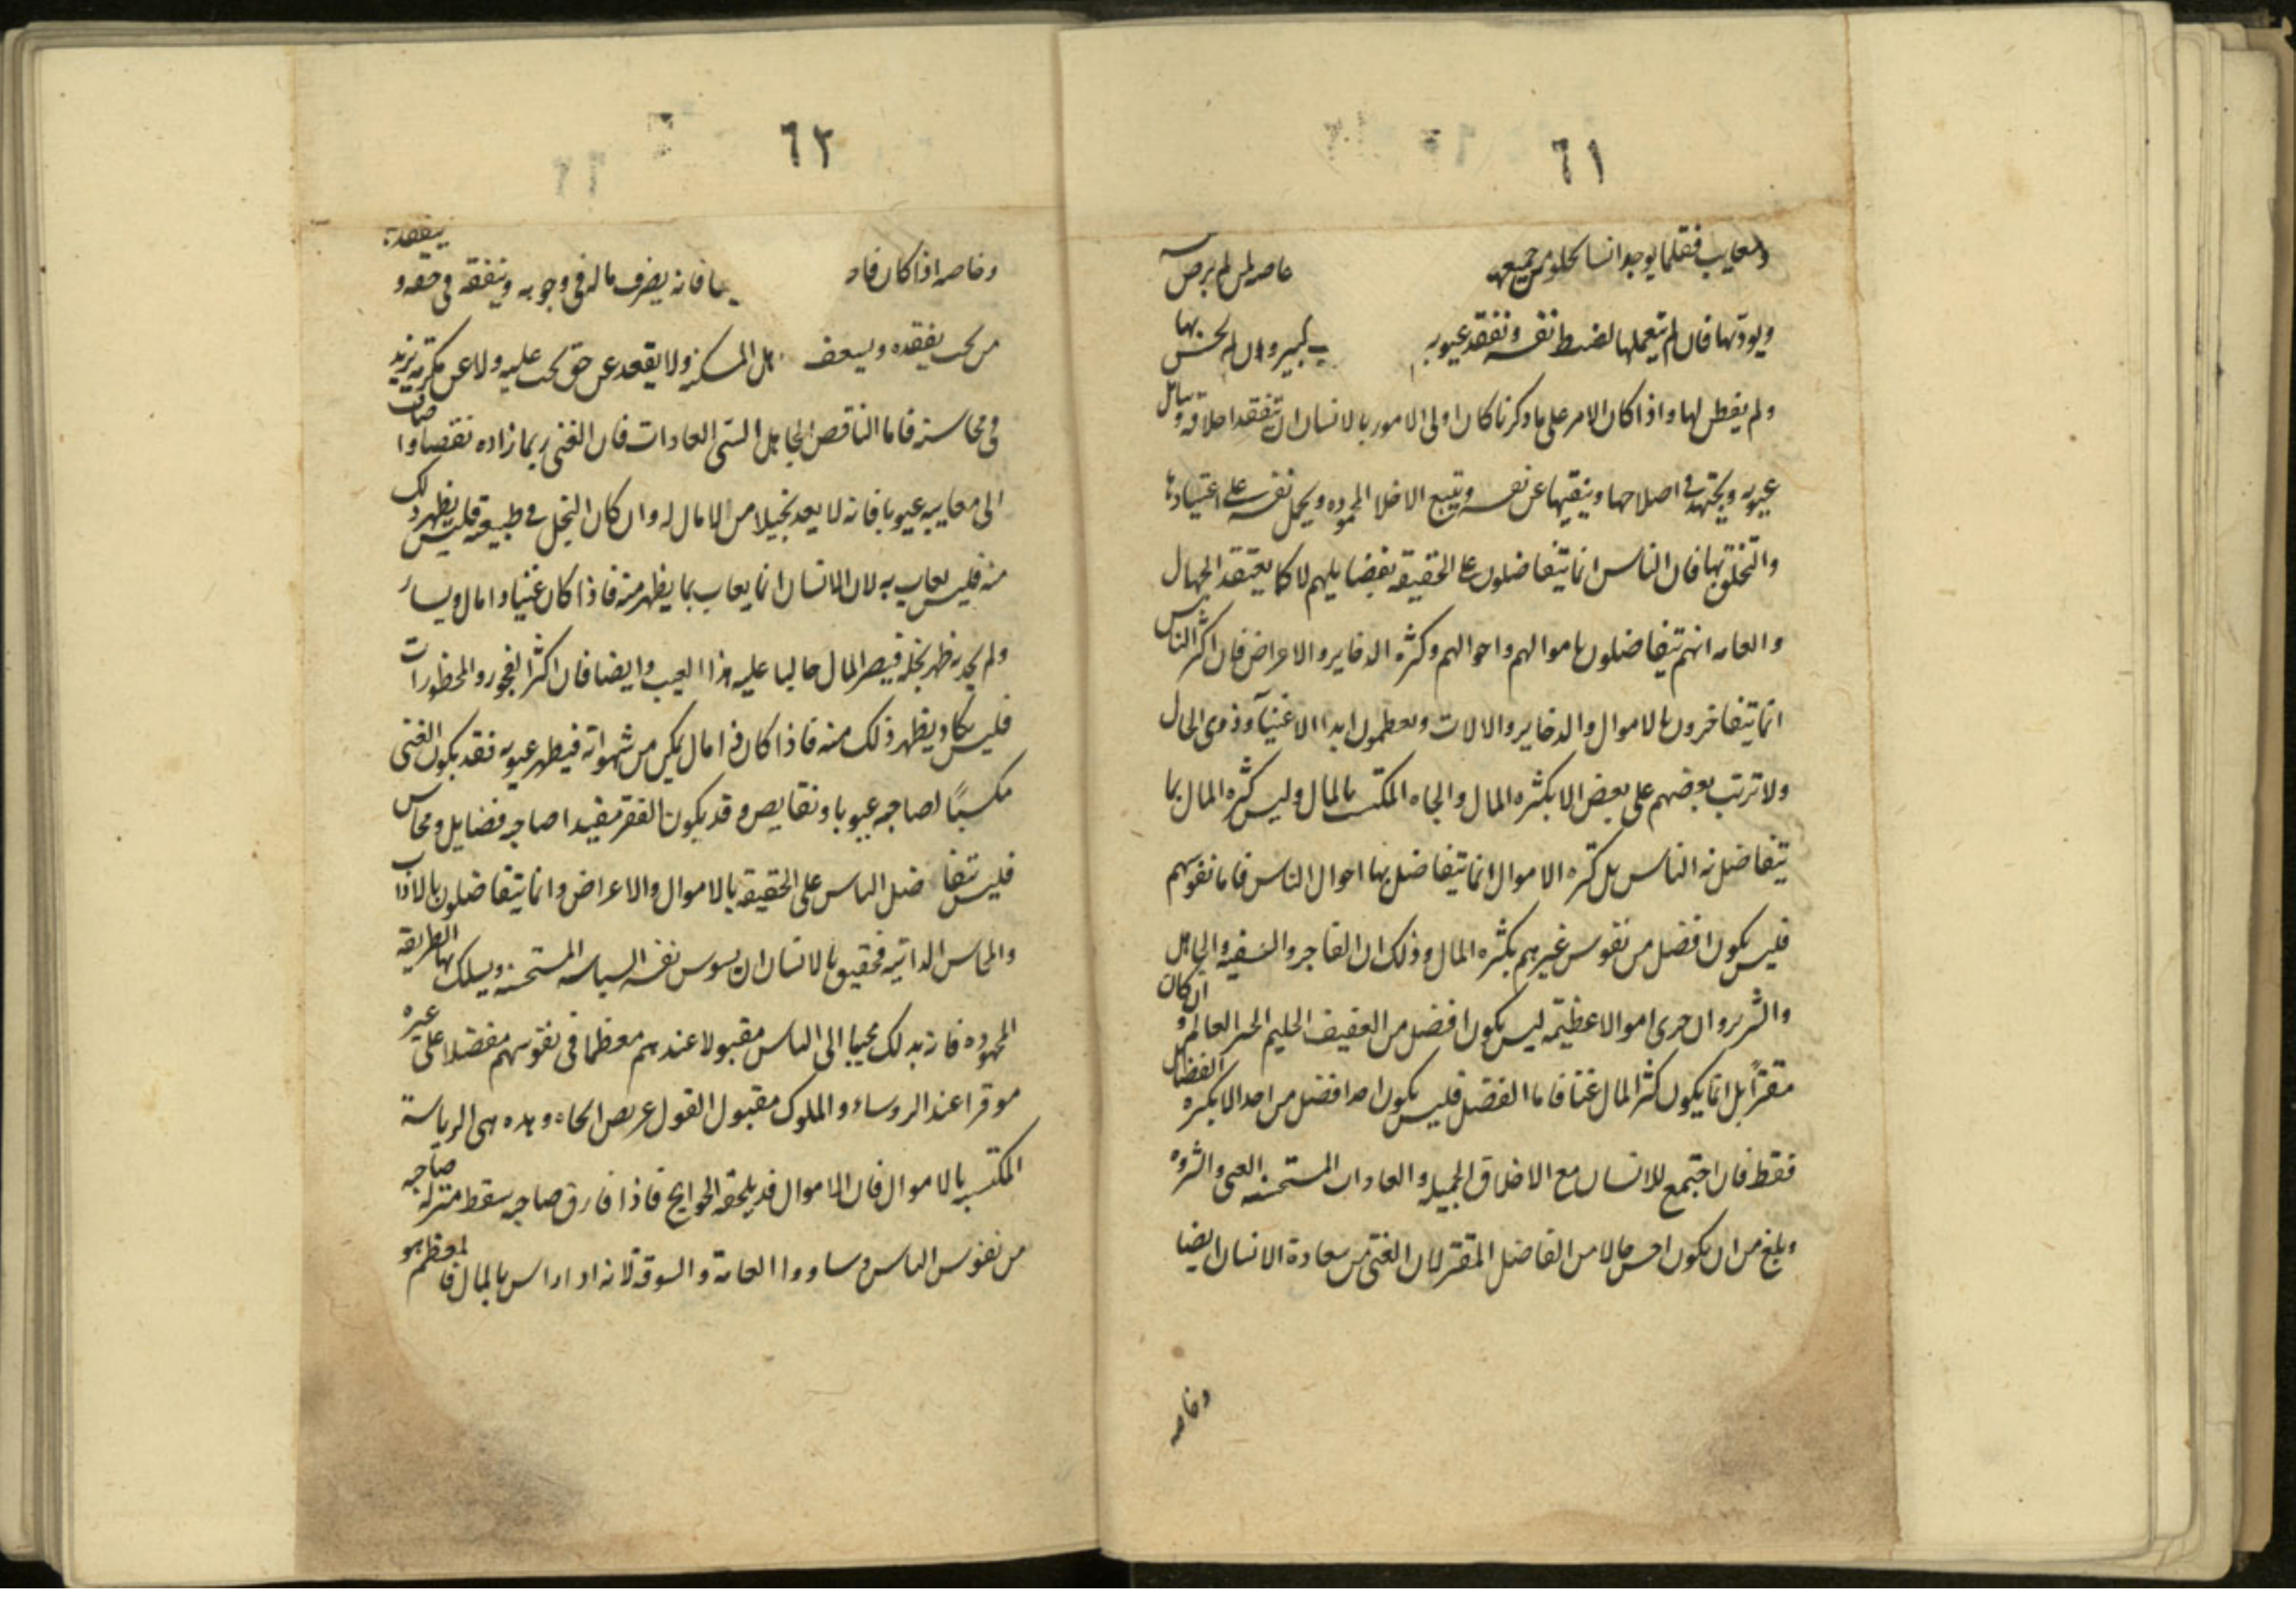 ٦١
ومعايب فقلما يوجد انسان يخلو من جميعها خاصه لمن لم يرض
ويودبها فان لم يتعملها لضبط نفسه وتفقد عيوبه كبير وان لم يحس بها
ولم يفطن لها واذا كان الامر على ما ذكرنا كان اولى الامور بالانسان ان يتفقد اخلاقه ويتامل
عيوبه ويجتهد في اصلاحها وينفيها عن نفسه ويتبع الاخلاق المحموده ويحمل نفسه على اعتيادها
والتخلق بها فان الناس انما يتفاضلون على الحقيقه بفضايلهم لا كما يعتقد الجهال
والعامه انهم يتفاضلون باموالهم واحوالهم وكثره الدخاير والاعراض فان اكثر الناس
انما يتفاخرون بالاموال والدخاير والالات ويعظمون ابدا الاغنيآ وذوى الحال
ولا ترتب بعضهم على بعض الا بكثره المال والجاه المكتسب بالمال وليس كثره المال مما
يتفاضل به الناس بل كثره الاموال انما يتفاضل بها احوال الناس فاما نفوسهم
فليس يكون افضل من نفوس غيرهم بكثره المال وذلك ان الفاجر والسفيه والجاهل
والشرير وان حوى اموالا عظيمه ليس يكون افضل من العفيف الحليم الخير العالم وان كان
مقترًا بل انما يكون كثر المال غنا فاما الفضل فليس يكون احد افضل من احد الا بكثره الفضايل
فقط فان اجتمع للانسان مع الاخلاق الجميله والعادات المستحسنه الغنى والثروه
وبلغ من ان يكون احسن حالا من الفاضل المقتر لان الغنى من سعادة الانسان ايضا
وخاصه
٦٢
وخاصه اذا كان فاه ما فانه يصرف ماله في وجوبه وينفقه في حقه و يتفقده
من يجب يفقده ويسعف اهل المسكنه ولا يقعد عن حق يجب عليه ولا عن مكرمه يزيد
في محاسنه فاما الناقص الجاهل السئى العادات فان الغنى ربما زاده نقصا واضاف
الى معايبه عيوبا فانه لا يعد بخيلا من لا مال له وان كان البخل في طبيعه فليس يظهر ذلك
منه فليس يعاب به لان الانسان انما يعاب بما يظهر منه فاذا كان غنيا وامال ويسار
ولم يجد به ظهر بخله فيصر المال جالبا عليه هذا العيب وايضا فان اكثر الفجور والمحظورات
فليس يكاد يظهر ذلك منه فاذا كان ذا مال يمكن من شهواته فيظهر عيوبه فقد يكون الغنى
مكسبًا لصاحبه عيوبا ونقايص وقد يكون الفقر مفيدا صاحبه فضايل ومحاسن
فليس تفاضل الناس على الحقيقه بالاموال والاعراض وانما يتفاضلون بالاداب
والمحاسن الداتيه فحقيق بالانسان ان يسوس نفسه السياسه المستحسنه ويسلك بها الطريقه
المحموده فانه بدلك محببا الى الناس مقبولا عندهم معظما في نفوسهم مفضلا على غيره
موقرا عند الروساء والملوك مقبول القول عريض الجاه وهده هى الرياسة
المكتسبه بالاموال فان الاموال قد يلحقه الحوايج فاذا فارق صاحبه سقط منزله صاحبه
من نفوس الناس وساووا العامة والسوقة لانه اد اراس بالمال فالمعظم هو